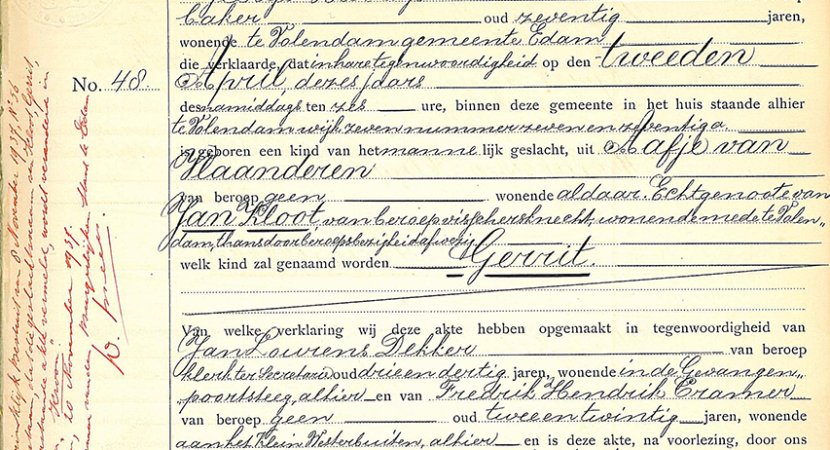 baker oud zeventig jaren,
wonende te Volendam gemeente Edam
die verklaarde, dat in haretegenwoordigheid op den tweeden
No. 48. April, dezes jaars
des namiddags ten zes ure, binnen deze gemeente in het huis staande alhier
te Volendam wijk zeven nummer zeven en zeventig a
is geboren een kind van het mannelijk geslacht, uit Aafje van
Vlaanderen
van beroep geen wonende aldaar. Echtgenoote van
Jan Kloot, van beroep visschersknecht, wonende mede te Volen„
dam, thans door beroepsbezigheid afwezig
welk kind zal genaamd worden Gerrit.
Van welke verklaring wij deze akte hebben opgemaakt in tegenwoordigheid van
Jan Lourens Dekker van beroep
klerk ter Secretarie oud drieendertig jaren, wonende in de Gevangen„
poortsteeg, alhier en van Fredrik Hendrik Cramer
van beroep geen oud tweeentwintig jaren, wonende
aan het Klein Westerbuiten, alhier en is deze akte, na voorlezing, door ons
8 November 1937, No. 76
November 1937.